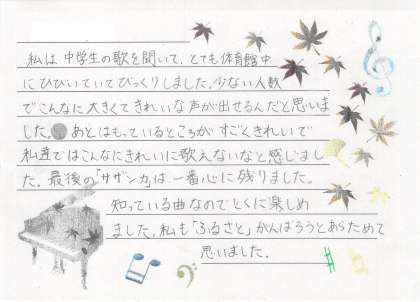 私は中学生の歌を聞いて、とても体育館中
にひびいていてびっくりしました。少ない人数
でこんなに大きくてきれいな声が出せるんだと思いま
した。あとはもっているところがすごくきれいで
私達ではこんなにきれいに歌えないなと感じまし
た。最後の「サザンカ」は一番心に残りました。
知っている曲なのでとくに楽しめ
ました。私も「ふるさと」がんばろうとあらためて
思いました。